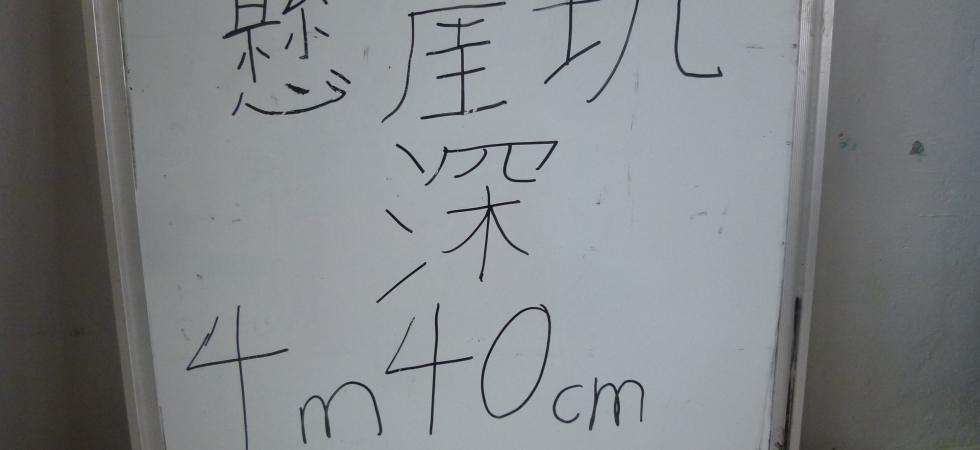 懸崖坑
深
4m40cm